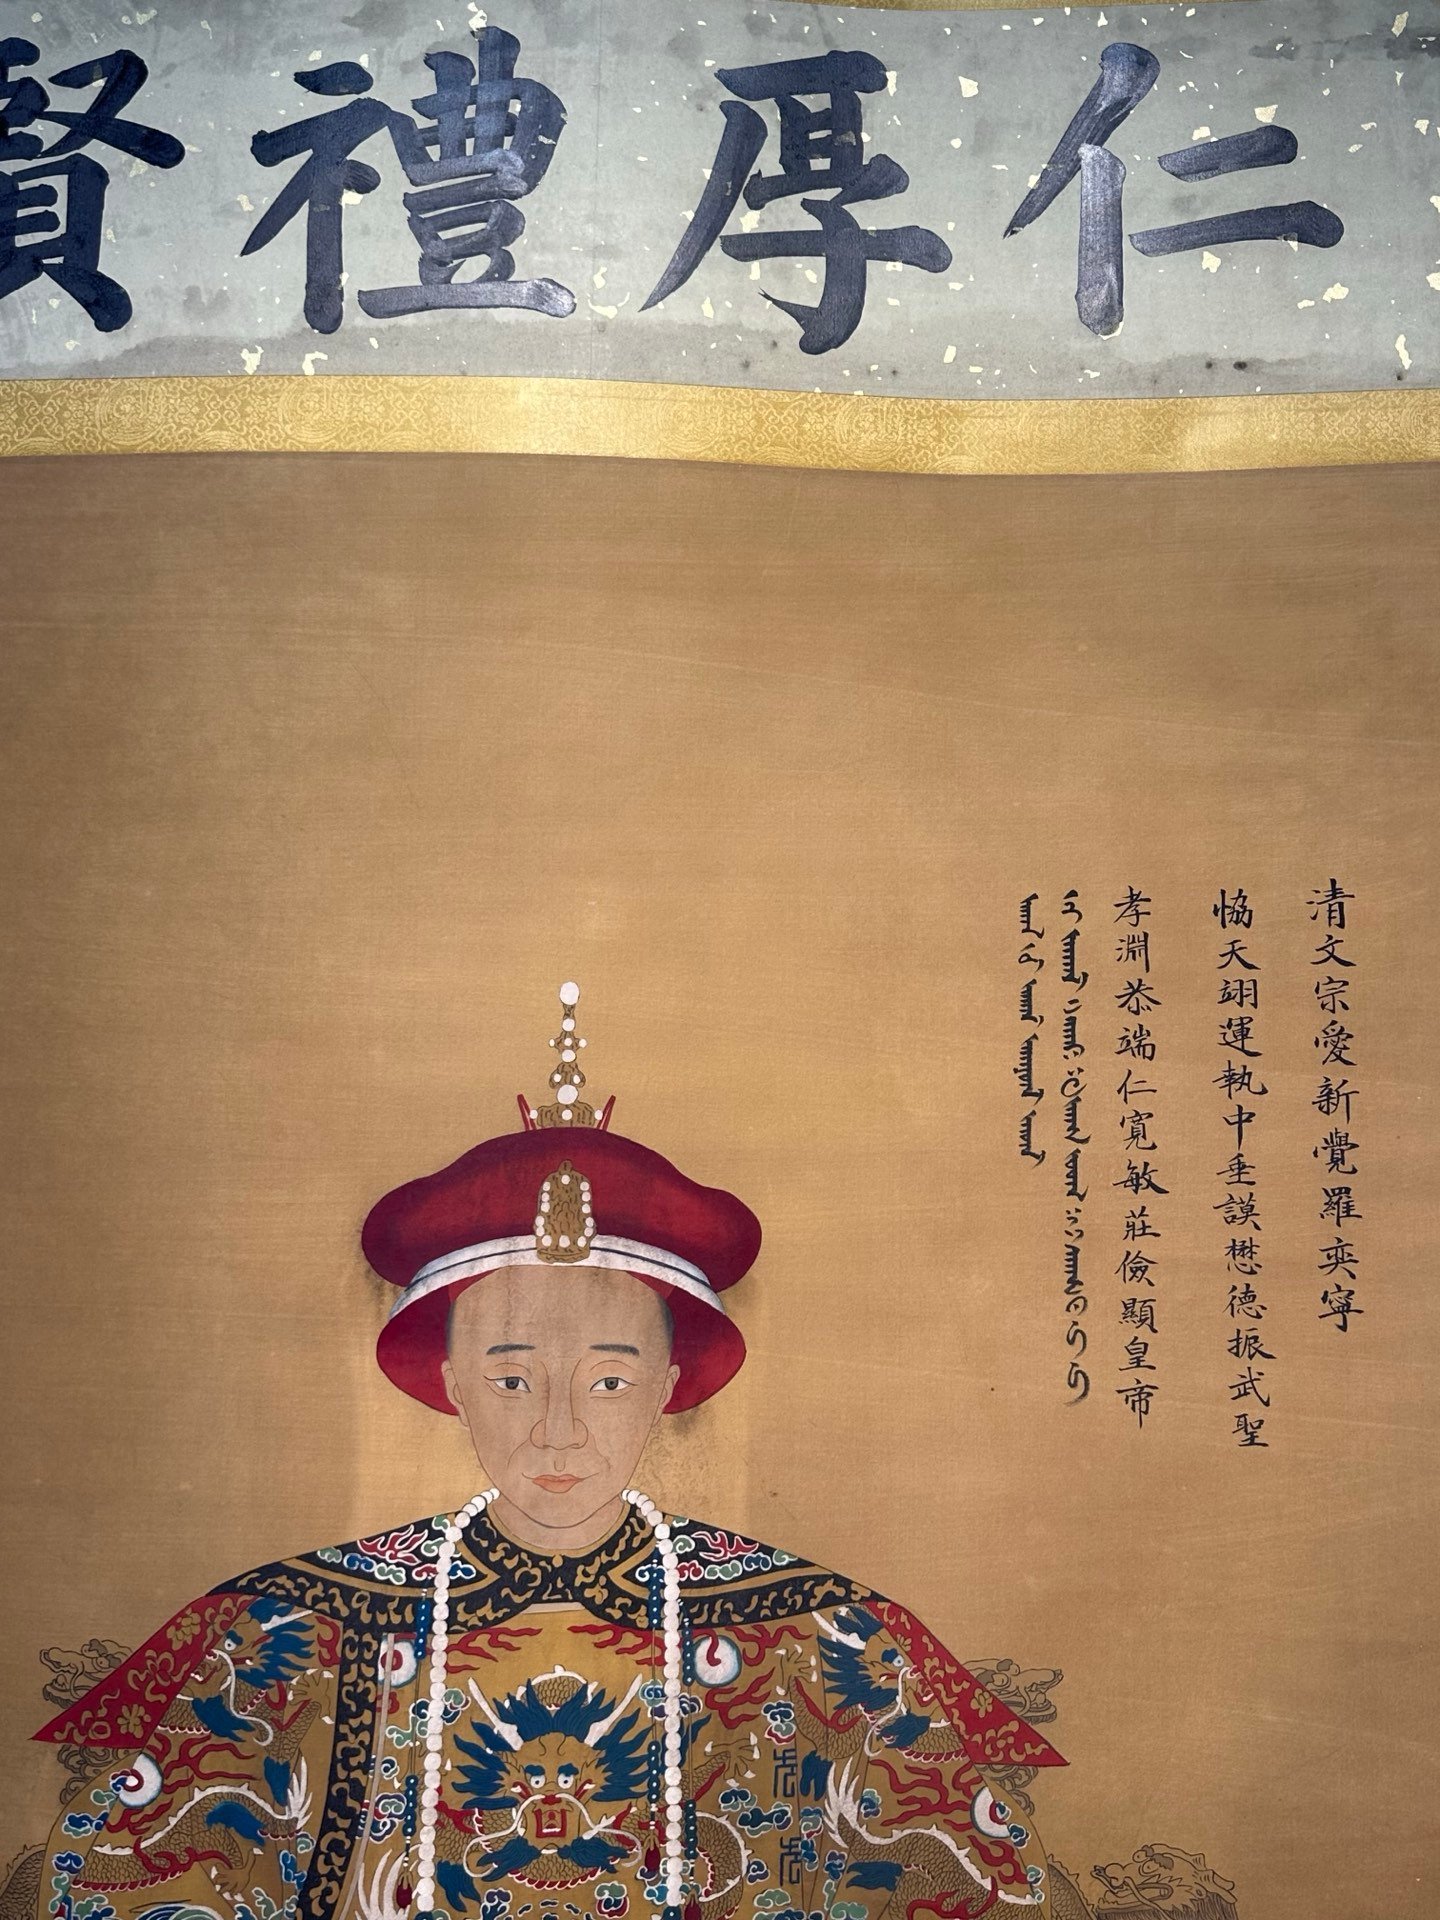 仁厚禮賢
清文宗愛新覺羅奕寧
恊天翊運執中垂謨懋德振武聖
孝淵恭端仁寬敏莊儉顯皇帝